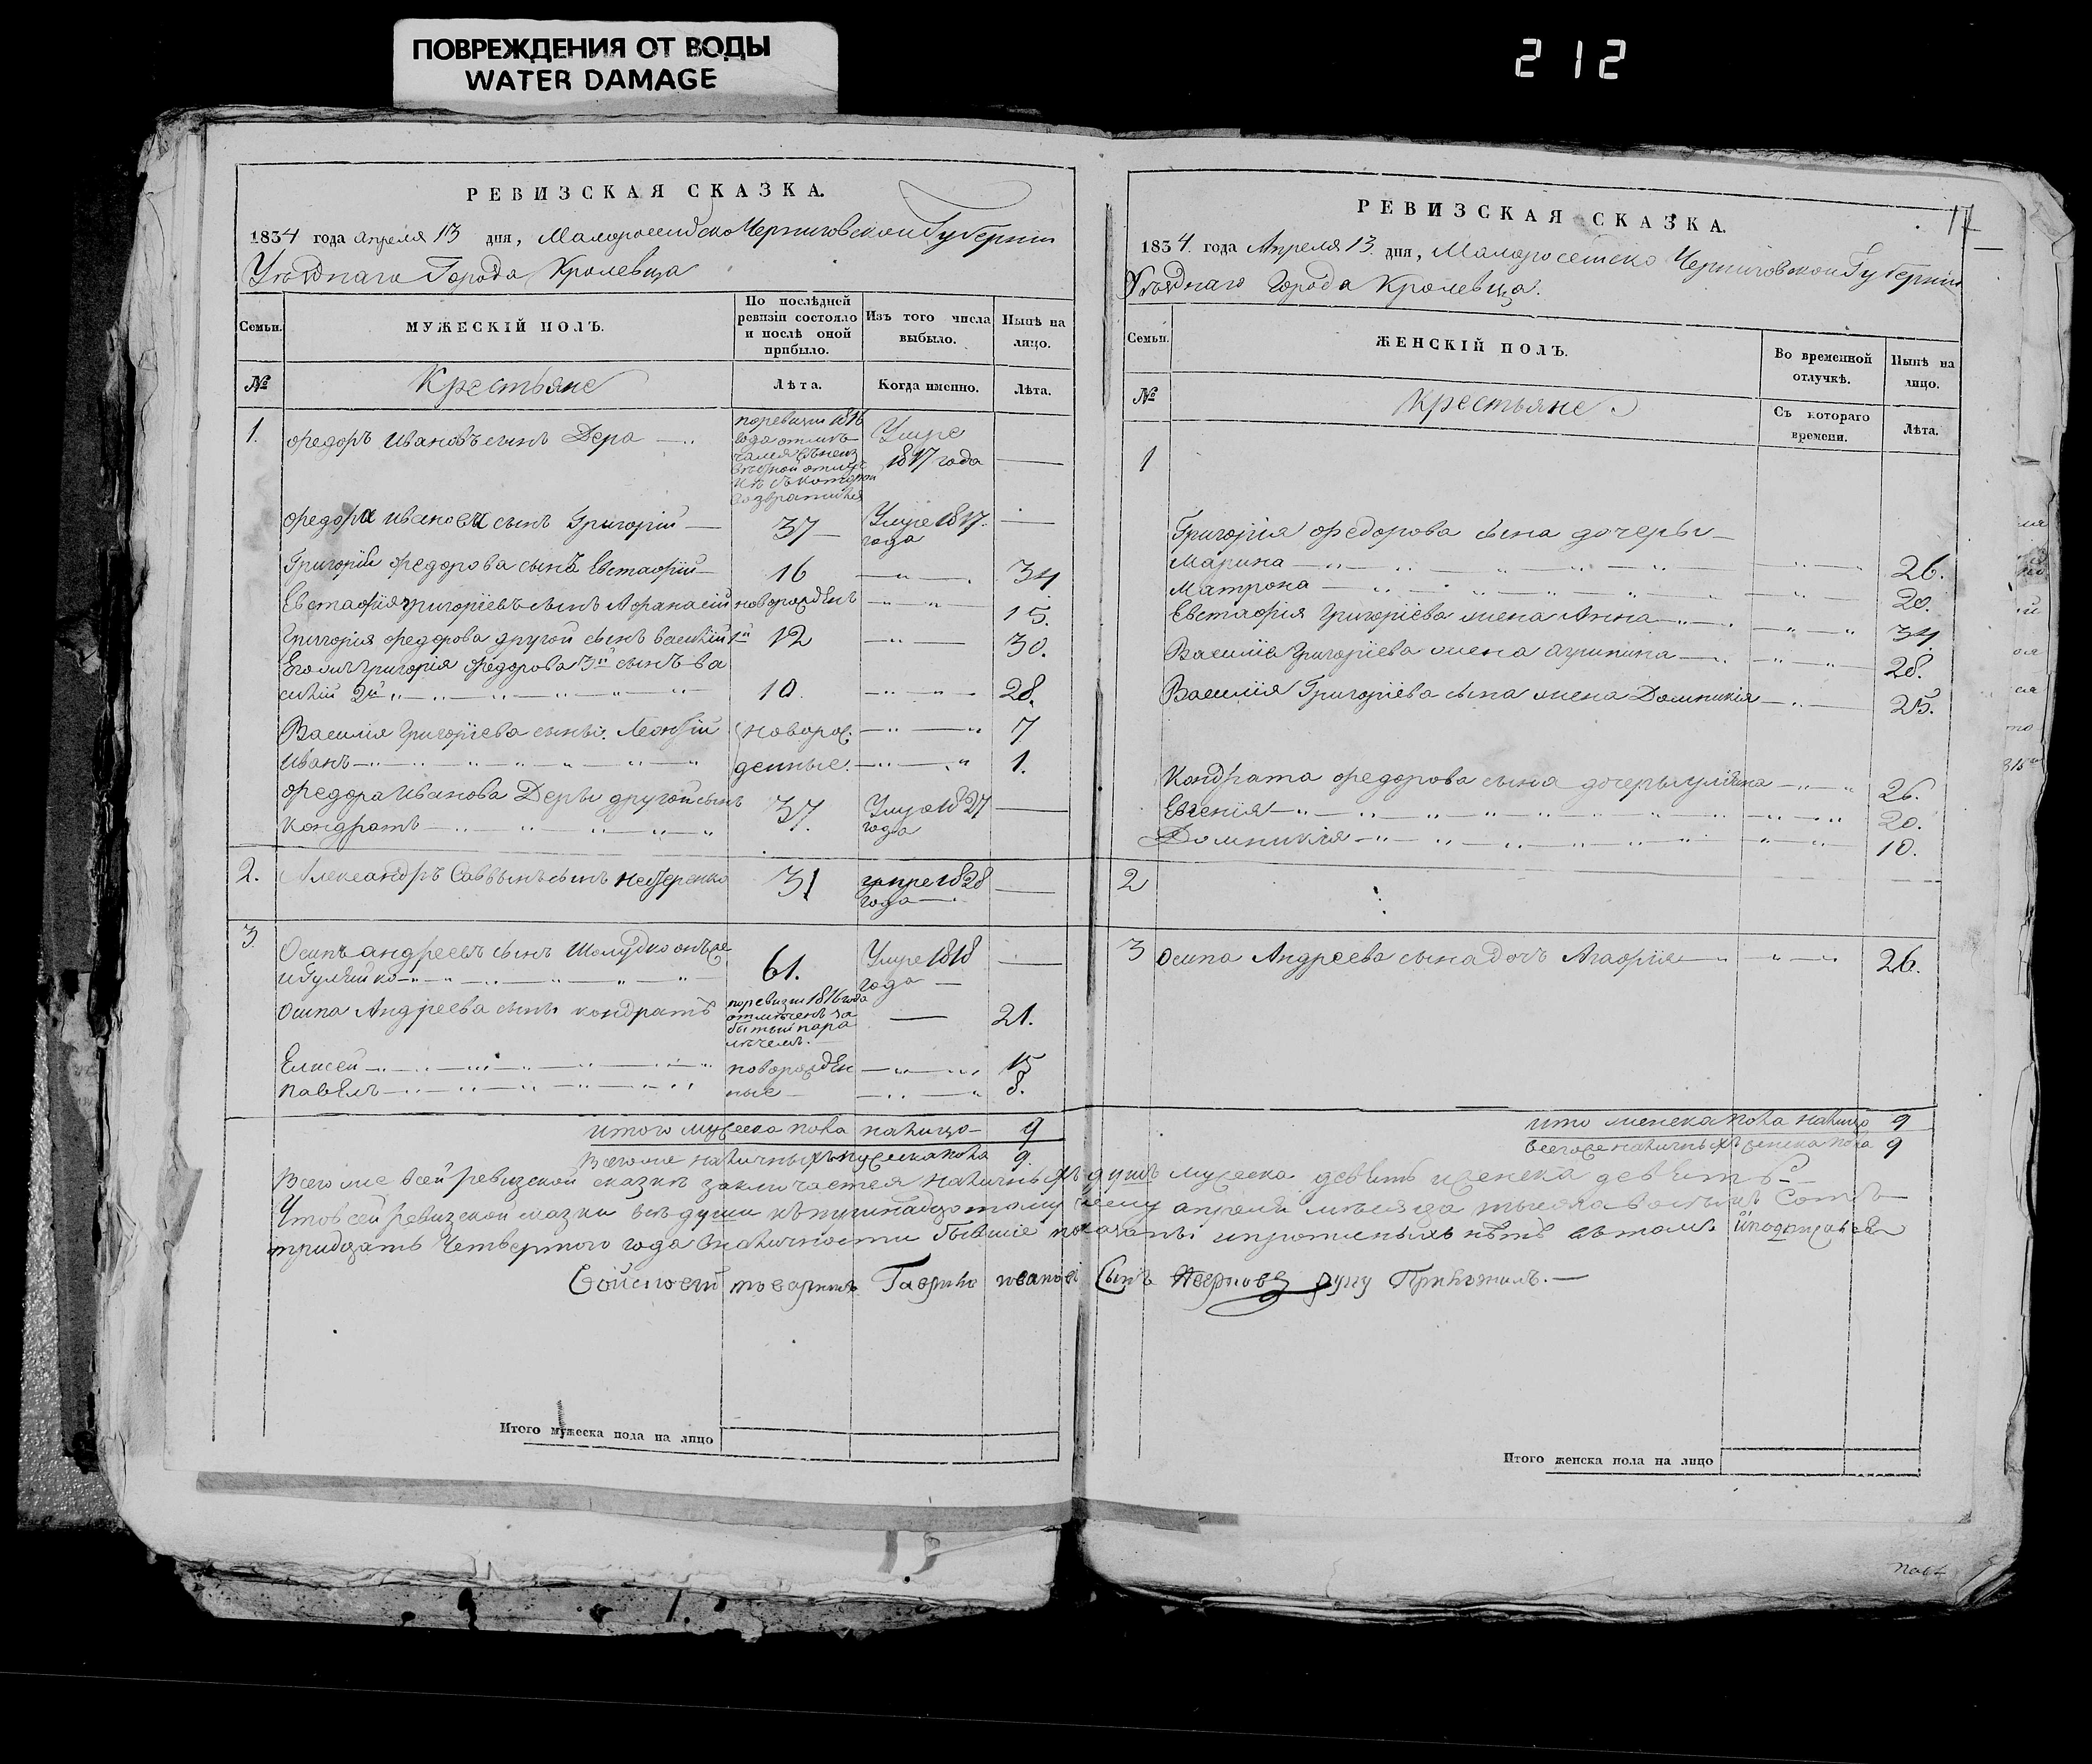 ПОВРЕЖДЕНИЯ ОТ ВОДЫ
WATER DAMAGE
212
РЕВИЗСКАЯ СКАЗКА.
1834 года апреля 13 дня, Малоросейско Черниговской Губернии
Уезднаго Города Кролевца
Семьи.
МУЖЕСКІЙ ПОЛЪ.
По послѣдней ревизіи состояло и послѣ оной прибыло.
Изъ того числа выбыло.
Нынѣ на лицо.
№
Крестьяне
Лѣта.
Когда именно.
Лѣта.
1. Федоръ Ивановъ сынъ Дера
по ревизіи 1816 года
Умре 1817 года
Федора Иванова сынъ Григорій 37 Умре 1817. года
Григорій Федорова сынъ Евстафій 16 34
Евстафія Григоріевъ сынъ Афанасій новорожденъ 15.
Григорія Федорова другой сынъ Василій 1й 12 30.
Его жъ Григорія Федорова 3й сынъ Ва
силій 2й 10. 28.
Василія Григоріева сыны. Леонтій новорож 7
Иванъ денные. 1.
Федора Иванова Деры другой сынъ
Кондратъ 37. Умре 1827 года
2. Александръ Саввинъ сынъ Нестеренко 31 умре 1828 года
3. Осипъ Андреевъ сынъ Шолудко онъ же
и Гуляйко 61. Умре 1818 года
Осипа Андреева сыны Кондратъ
по ревизіи 1816 года
21.
Елисей новорожден 15
Павелъ ные 8.
итого мужеска пола налицо 9
Всего же наличныхъ мужеска пола 9.
РЕВИЗСКАЯ СКАЗКА.
17
1834. года Апреля 13. дня, Малоросейско Черниговской Губерніи
Уезднаго Города Кролевца.
Семьи.
ЖЕНСКІЙ ПОЛЪ.
Во временной отлучкѣ.
Нынѣ на лицо.
№
Крестьяне.
Съ котораго времени.
Лѣта.
1
Григорія Федорова сына дочеры
Марина 26.
Матрона 20.
Евстафія Григоріева жена Анна 34.
Василія Григоріева жена Агрипина 28.
Василія Григоріева сына жена Домникія 25.
Кондрата Федорова сына дочеры Улияна 26.
Евгенія 20.
Домникія 10.
2
3 Осипа Андреева сына дочъ Агафія 26.
итого женска пола налицо 9
всего же наличныхъ женска пола 9
Всего же в сей ревизской сказкѣ заключается наличныхъ душъ мужеска девять и женска девять
Что в сей ревизской сказки все души къ тринадцатому сему апреля месяца тысяча восемь сотъ
тридцать четвертого года в наличности бывшіе показаны и прописныхъ нѣтъ въ томъ и подписался
Войсковый товарищъ Гаврило Ивановъ Сынъ руку Приложилъ.
Итого мужеска пола на лицо
Итого женска пола на лицо